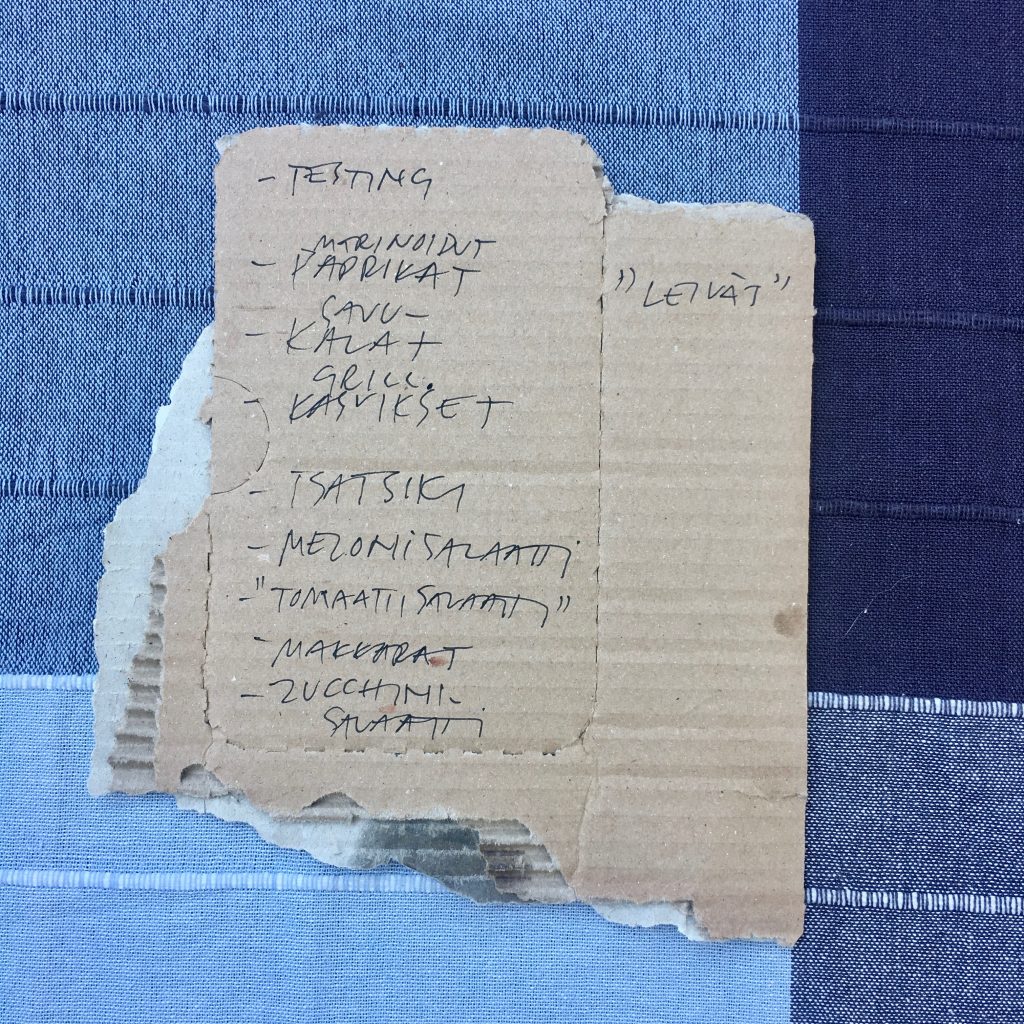 - TESTING
MARINOIDUT
- PAPRIKAT
SAVU-
- KALAT
GRILL.
- KASVIKSET
- TSATSIKI
- MELONISALAATTI
- "TOMAATTISALAATTI"
- MAKKARAT
- ZUCCHINI-
SALAATTI
"LEIVÄT"